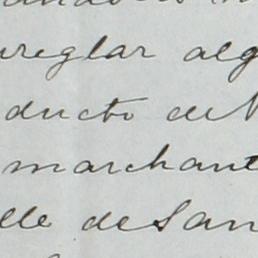 arreglar alg
ducto de N
marchant
lle de San